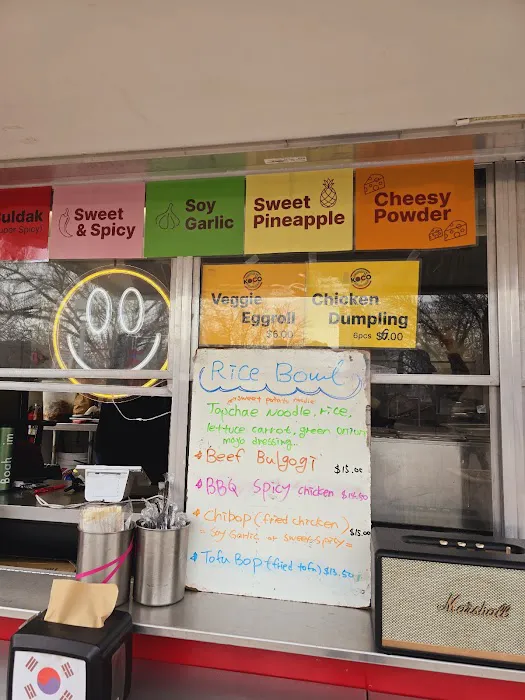 uldak
Super Spicy)
Sweet
& Spicy
Soy
Garlic
Sweet
Pineapple
Cheesy
Powder
KOCO
Veggie
Eggroll
$6.00
KOCO
Chicken
Dumpling
6pcs $6.00
Rice Bowl
Sweet potato noodle
Japchae Noodle, rice,
lettuce carrot, green Union
mayo dressing..
Beef Bulgogi $15.00
BBQ Spicy chicken
Chibap (fried chicken) $15.00
= Soy Garlic or Sweet & Spicy =
Tofu Bop (fried tofu) $13.50
Boah im
Marshall